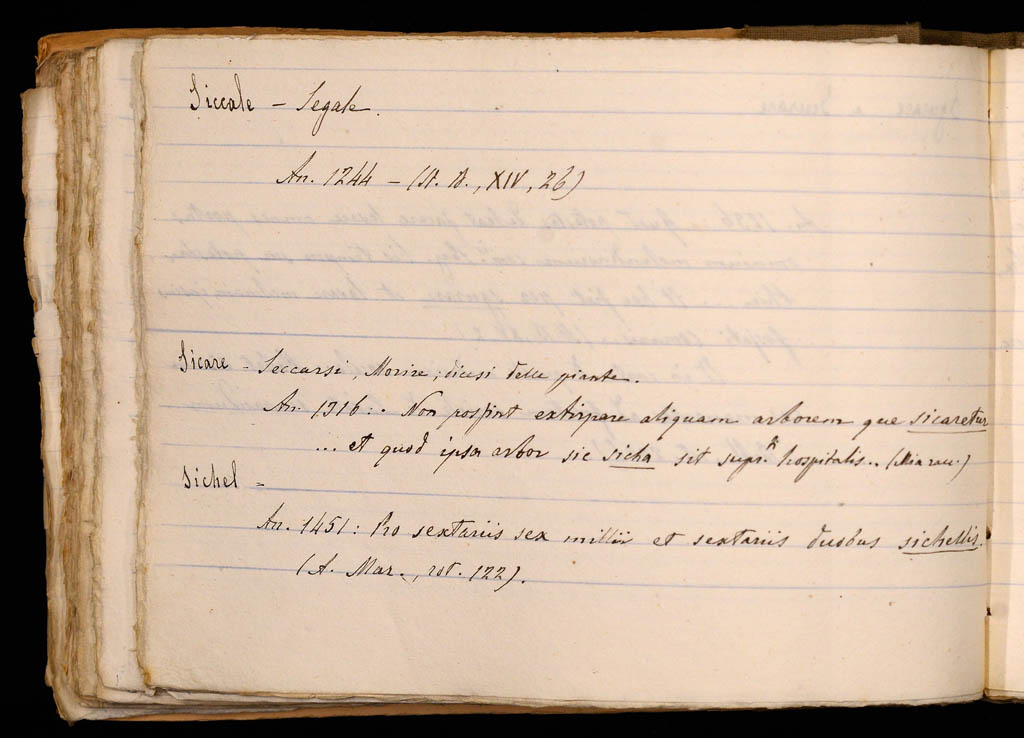 Siccale - Segale.
An. 1244 - (St. B., XIV, 26)
Sicare - Seccarsi, Morire; dicesi delle piante.
An. 1316: . Non possint extirpare aliquam arborem que sicaretur
... et quod ipsa arbor sic sicha sit supr. hospitalis.. (Mia racc.)
Sichel =
An. 1451: Pro sextariis sex millii et sextariis duobus sichellis.
(A. Mar., rot. 122).